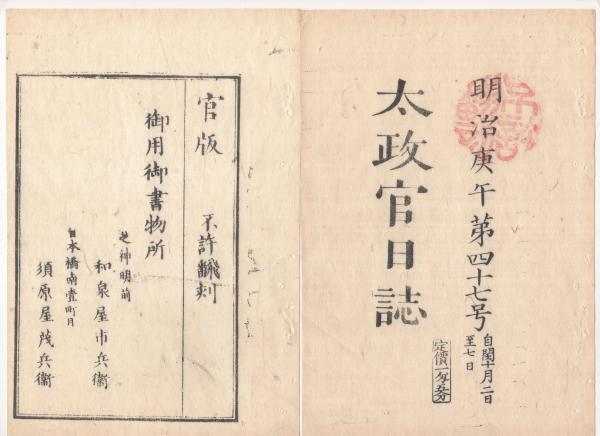 明治庚午第四十七号
自閏十月二日
至七日
太政官日誌
定價一匁五分
官版
不許飜刻
御用御書物所
芝神明前
和泉屋市兵衞
日本橋南壹町目
須原屋茂兵衞